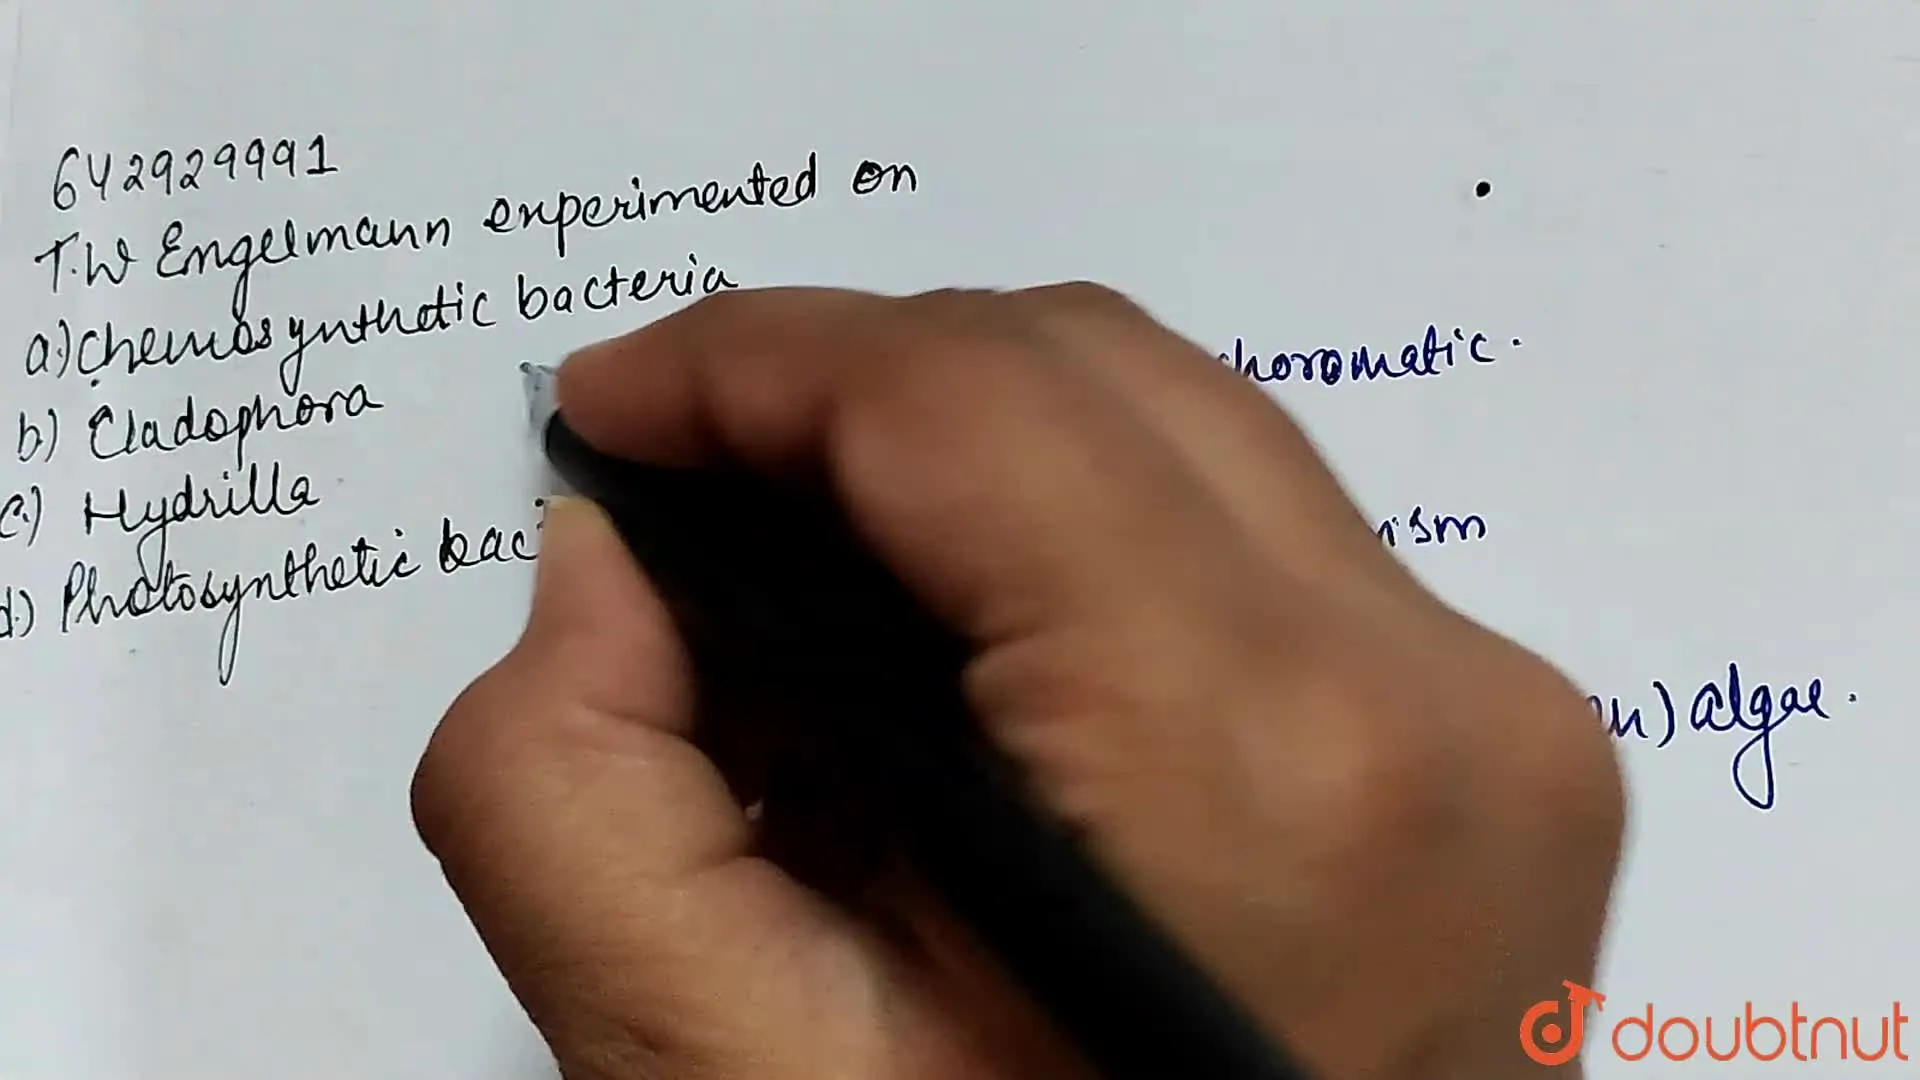 642929991
T.W Engelmann experimented on
a.) Chemosynthetic bacteria
b.) Cladophora
c.) Hydrilla
d.) Photosynthetic bac
algae.
doubtnut